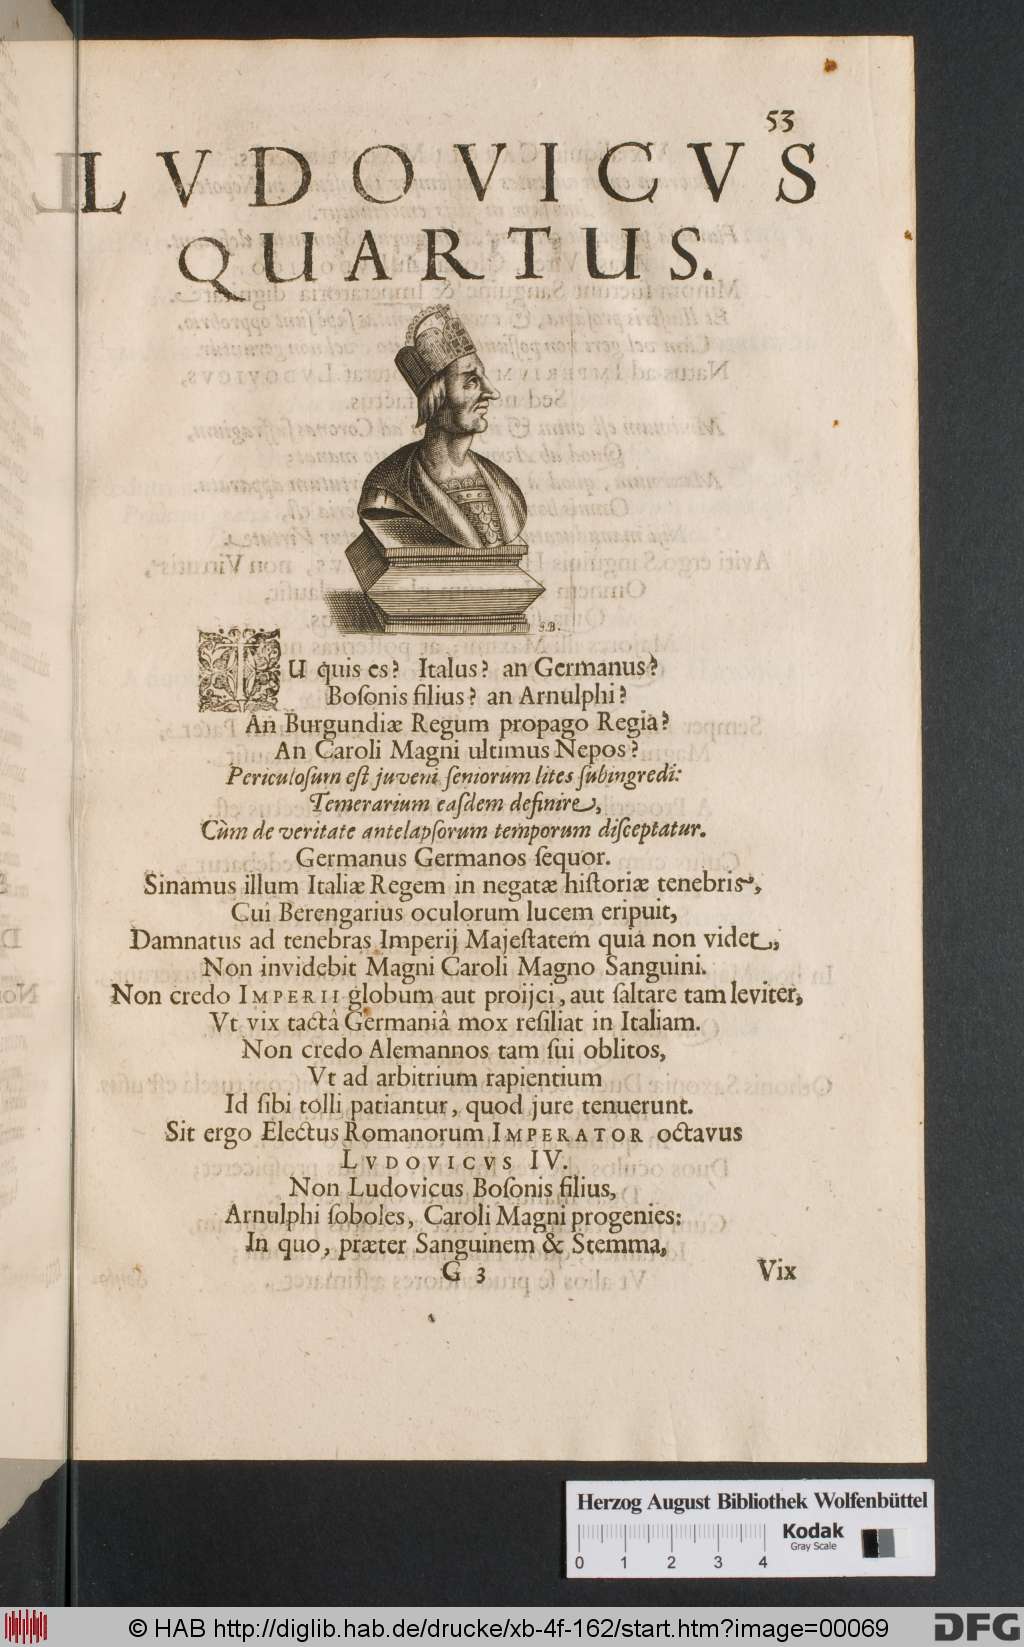 53
LVDOVICVS
QUARTUS.
S.B.
TU quis es? Italus? an Germanus?
Boſonis filius? an Arnulphi?
An Burgundiæ Regum propago Regia?
An Caroli Magni ultimus Nepos?
Periculoſum eſt juveni ſeniorum lites ſubingredi:
Temerarium eaſdem definire,
Cùm de veritate antelapſorum temporum diſceptatur.
Germanus Germanos ſequor.
Sinamus illum Italiæ Regem in negatæ hiſtoriæ tenebris,
Cui Berengarius oculorum lucem eripuit,
Damnatus ad tenebras Imperij Majeſtatem quia non videt,
Non invidebit Magni Caroli Magno Sanguini.
Non credo IMPERII globum aut proijci, aut ſaltare tam leviter,
Vt vix tactâ Germaniâ mox reſiliat in Italiam.
Non credo Alemannos tam ſui oblitos,
Vt ad arbitrium rapientium
Id ſibi tolli patiantur, quod jure tenuerunt.
Sit ergo Electus Romanorum IMPERATOR octavus
LVDOVICVS IV.
Non Ludovicus Boſonis filius,
Arnulphi ſoboles, Caroli Magni progenies:
In quo, præter Sanguinem & Stemma,
G 3 Vix
Herzog August Bibliothek Wolfenbüttel
Kodak
Gray Scale
0 1 2 3 4
© HAB http://diglib.hab.de/drucke/xb-4f-162/start.htm?image=00069
DFG